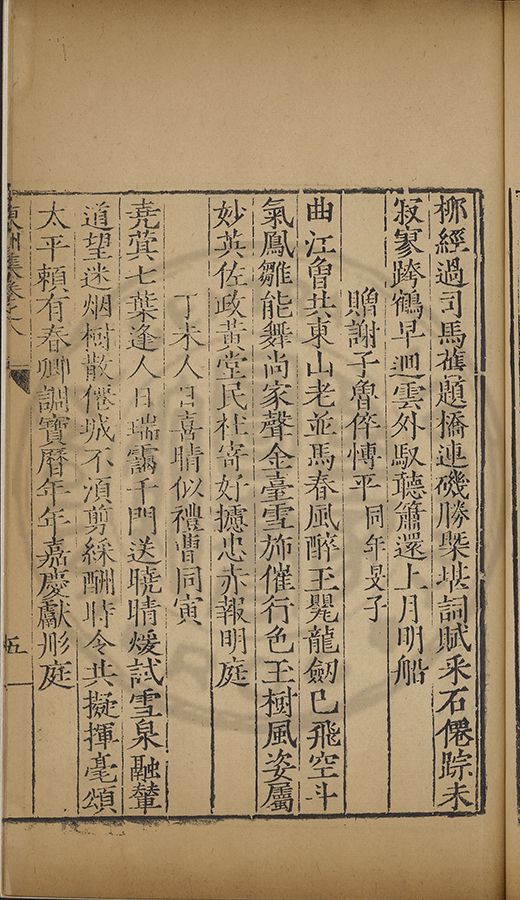 桞經過司馬舊題橋連磯勝槩堪詞賦采石僊踪未
寂寥跨鶴早迴雲外馭聽簫還上月明船
贈謝子魯倅慱平 同年旻子
曲江曾共東山老並馬春風醉玉龍劒已飛空斗
氣鳳雛能舞尚家聲金臺雪斾催行色玉樹風姿屬
妙英佐政黄堂民社寄好攄忠赤報明庭
丁未人日喜晴似禮曹同寅
堯蓂七葉逢人日瑞靄千門送曉晴煖試雪泉融輦
道望迷烟樹散僊城不湏剪綵酬時令共擬揮毫頌
太平頼有春卿調寶曆年年嘉慶獻彤庭
東洲集卷之八 五